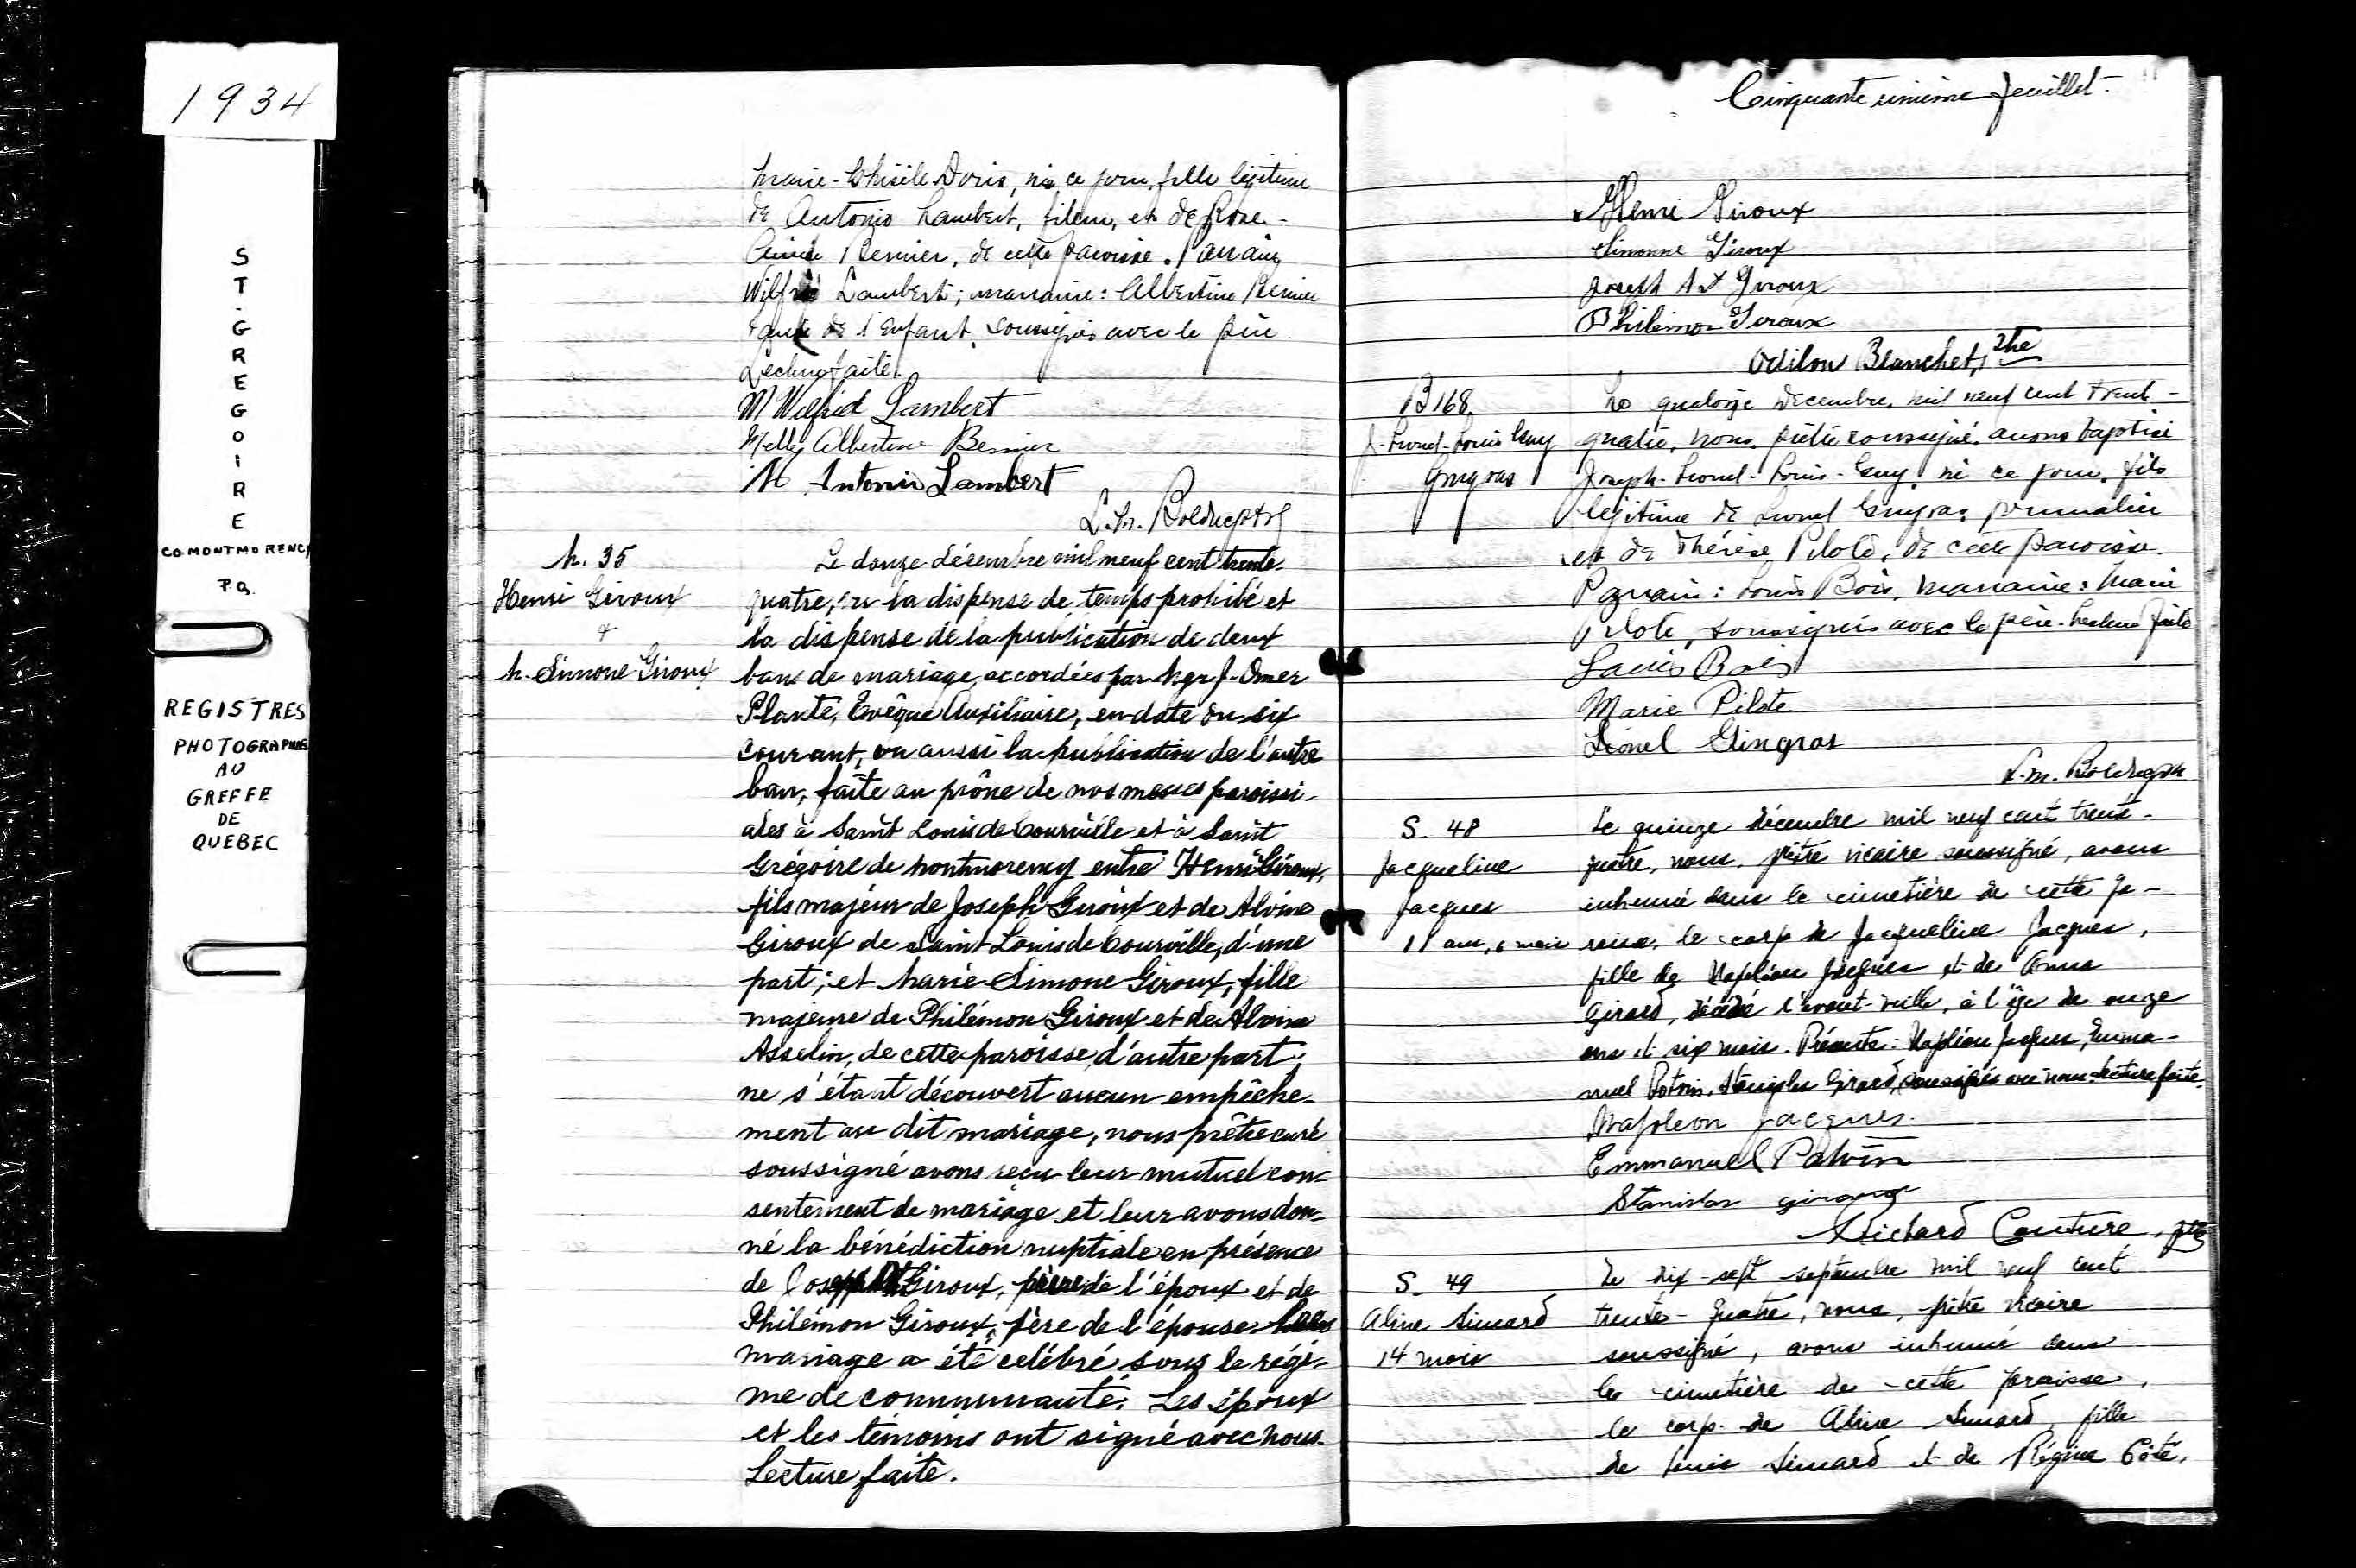 1934
ST. GREGOIRE
CO. MONTMORENCY
P.Q.
REGISTRES
PHOTOGRAPHIES
AU
GREFFE
DE
QUEBEC
Marie-Ghisèle Doris, née ce jour, fille légitime
de Antonio Lambert, fileur, et de Rose-
Aimée Bernier, de cette paroisse. Parrain
Wilfrid Lambert; marraine: Albertine Bernier
de l'enfant, soussignés avec le père.
Lecture faite.
M Wilfrid Lambert
Melle Albertine Bernier
M Antonio Lambert
L.M. Bolduc ptre
M. 35
Henri Giroux
&
M. Simone Giroux
Le douze décembre mil neuf cent trente-
quatre, vu la dispense de temps prohibé et
la dispense de la publication de deux
bans de mariage, accordées par Mgr J-Omer
Plante, Evêque Auxiliaire, en date du six
courant, vu aussi la publication de l'autre
ban, faite au prône de nos messes paroissi-
ales à Saint Louis de Courville et à Saint
Grégoire de Montmorency entre Henri Giroux,
fils majeur de Joseph Giroux et de Alvine
Giroux de Saint Louis de Courville, d'une
part; et Marie-Simone Giroux, fille
majeure de Philémon Giroux et de Alvina
Asselin, de cette paroisse, d'autre part;
ne s'étant découvert aucun empêche-
ment au dit mariage, nous prêtre curé
soussigné avons reçu leur mutuel con-
sentement de mariage et leur avons don-
né la bénédiction nuptiale en présence
de Joseph Giroux, père de l'époux et de
Philémon Giroux, père de l'épouse.
mariage a été célébré sous le régi-
me de communauté. Les époux
et les témoins ont signé avec nous.
Lecture faite.
Cinquante sixième feuillet.
Henri Giroux
Simonne Giroux
Joseph Art Giroux
Philémon Giroux
Odilon Blanchet, ptre
B 168
J-Lionel-Louis Guy
Gingras
Le quatorze décembre, mil neuf cent trente-
quatre, nous, prêtre soussigné, avons baptisé
Joseph-Lionel-Louis-Guy, né ce jour, fils
légitime de Lionel Gingras, journalier
et de Thérèse Pilote, de cette paroisse.
Parrain: Louis Bois, marraine: Marie
Pilote, soussignés avec le père. Lecture faite
Louis Bois
Marie Pilote
Lionel Gingras
L.M. Bolduc ptre
S. 48
Jacqueline
Jacques
11 ans, 6 mois
Le quinze décembre mil neuf cent trente-
quatre, nous, prêtre vicaire soussigné, avons
inhumé dans le cimetière de cette pa-
roisse, le corps de Jacqueline Jacques,
fille de Napoléon Jacques et de Anna
Girard, décédée l'avant-veille, à l'âge de onze
ans et six mois. Présents: Napoléon Jacques, Emma-
nuel Potvin, Stanislas Girard, soussignés avec nous. Lecture faite.
Napoleon Jacques.
Emmanuel Potvin
Stanislas Girard
Richard Couture, ptre
S. 49
Aline Simard
14 mois
Le dix-sept septembre mil neuf cent
trente-quatre, nous, prêtre vicaire
soussigné, avons inhumé dans
le cimetière de cette paroisse,
le corps de Aline Simard, fille
de Louis Simard et de Régina Côté,